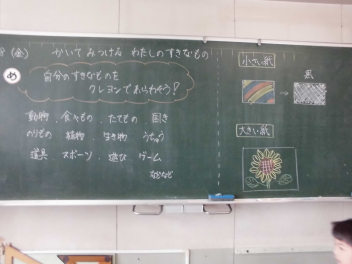 (金) かいて みつける わたしのすきなもの
め
自分のすきなものを
クレヨンであらわそう!
動物 食べもの たてもの
のりもの 植物 生き物 うちゅう
道具 スポーツ 遊び ゲーム
などなど
小さい紙
紙
大きい紙